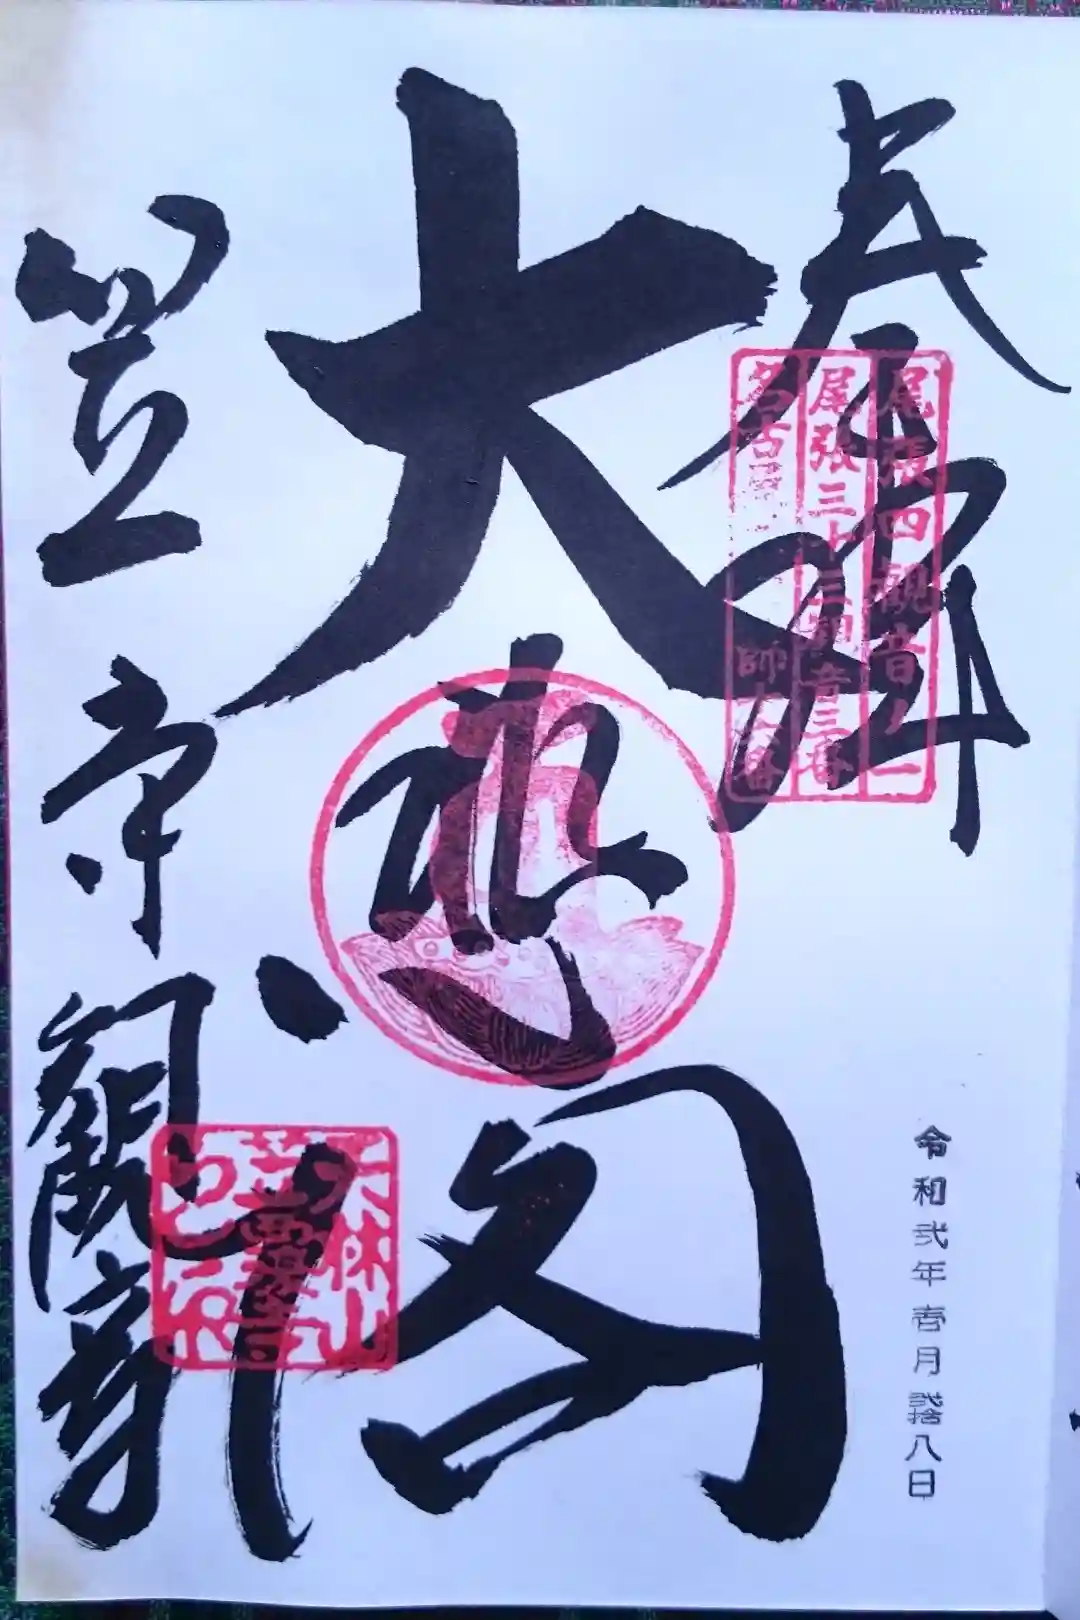 奉拝
尾張四観音ノ一
尾張三十三観音三番
名古屋
師六番
大悲閣
笠寺観音
天林山
笠覆寺
令和弐年壱月弐拾八日